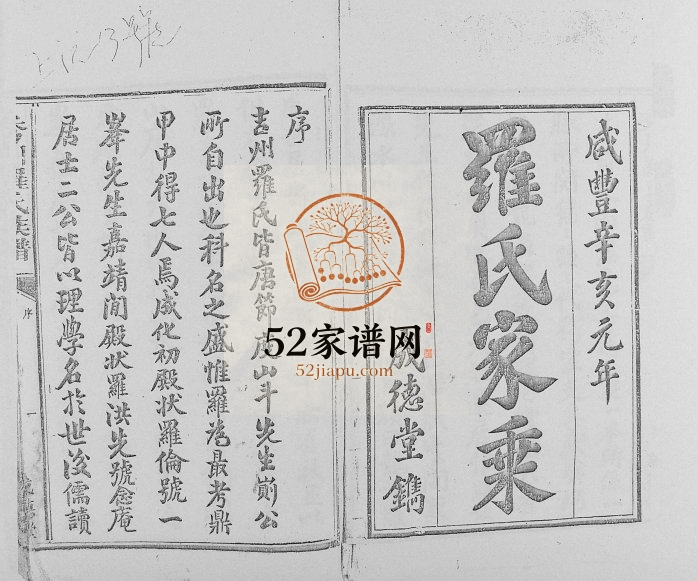 咸豐辛亥元年
羅氏家乘
德堂鐫
序
吉州羅氏皆唐節度山斗先生崱公
所自出也科名之盛惟羅為最考鼎
甲中得七人焉成化初殿狀羅倫號一
峯先生嘉靖間殿狀羅洪先號念庵
居士二公皆以理學名於世後儒讀
羅氏族譜
序
一
52家谱网
52jiapu.com